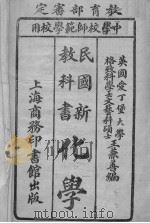 教育部審定
中學校師範學校用
英國愛丁堡大學
格致科學士文藝科碩士
王兼善編
民國新
教科書
化學
上海商務印書館出版